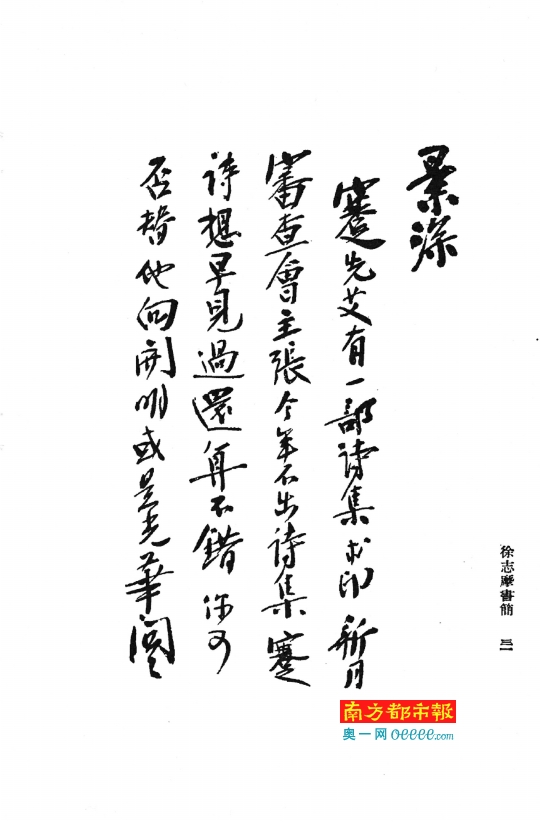 景深
蹇先艾有一部诗集求印 新月
審查會主張今年不出诗集 蹇
诗想早見過還算不錯 你可
否替他向開明或是光華
徐志摩書簡 三一
南方都市報
奥一网 oeeee.com